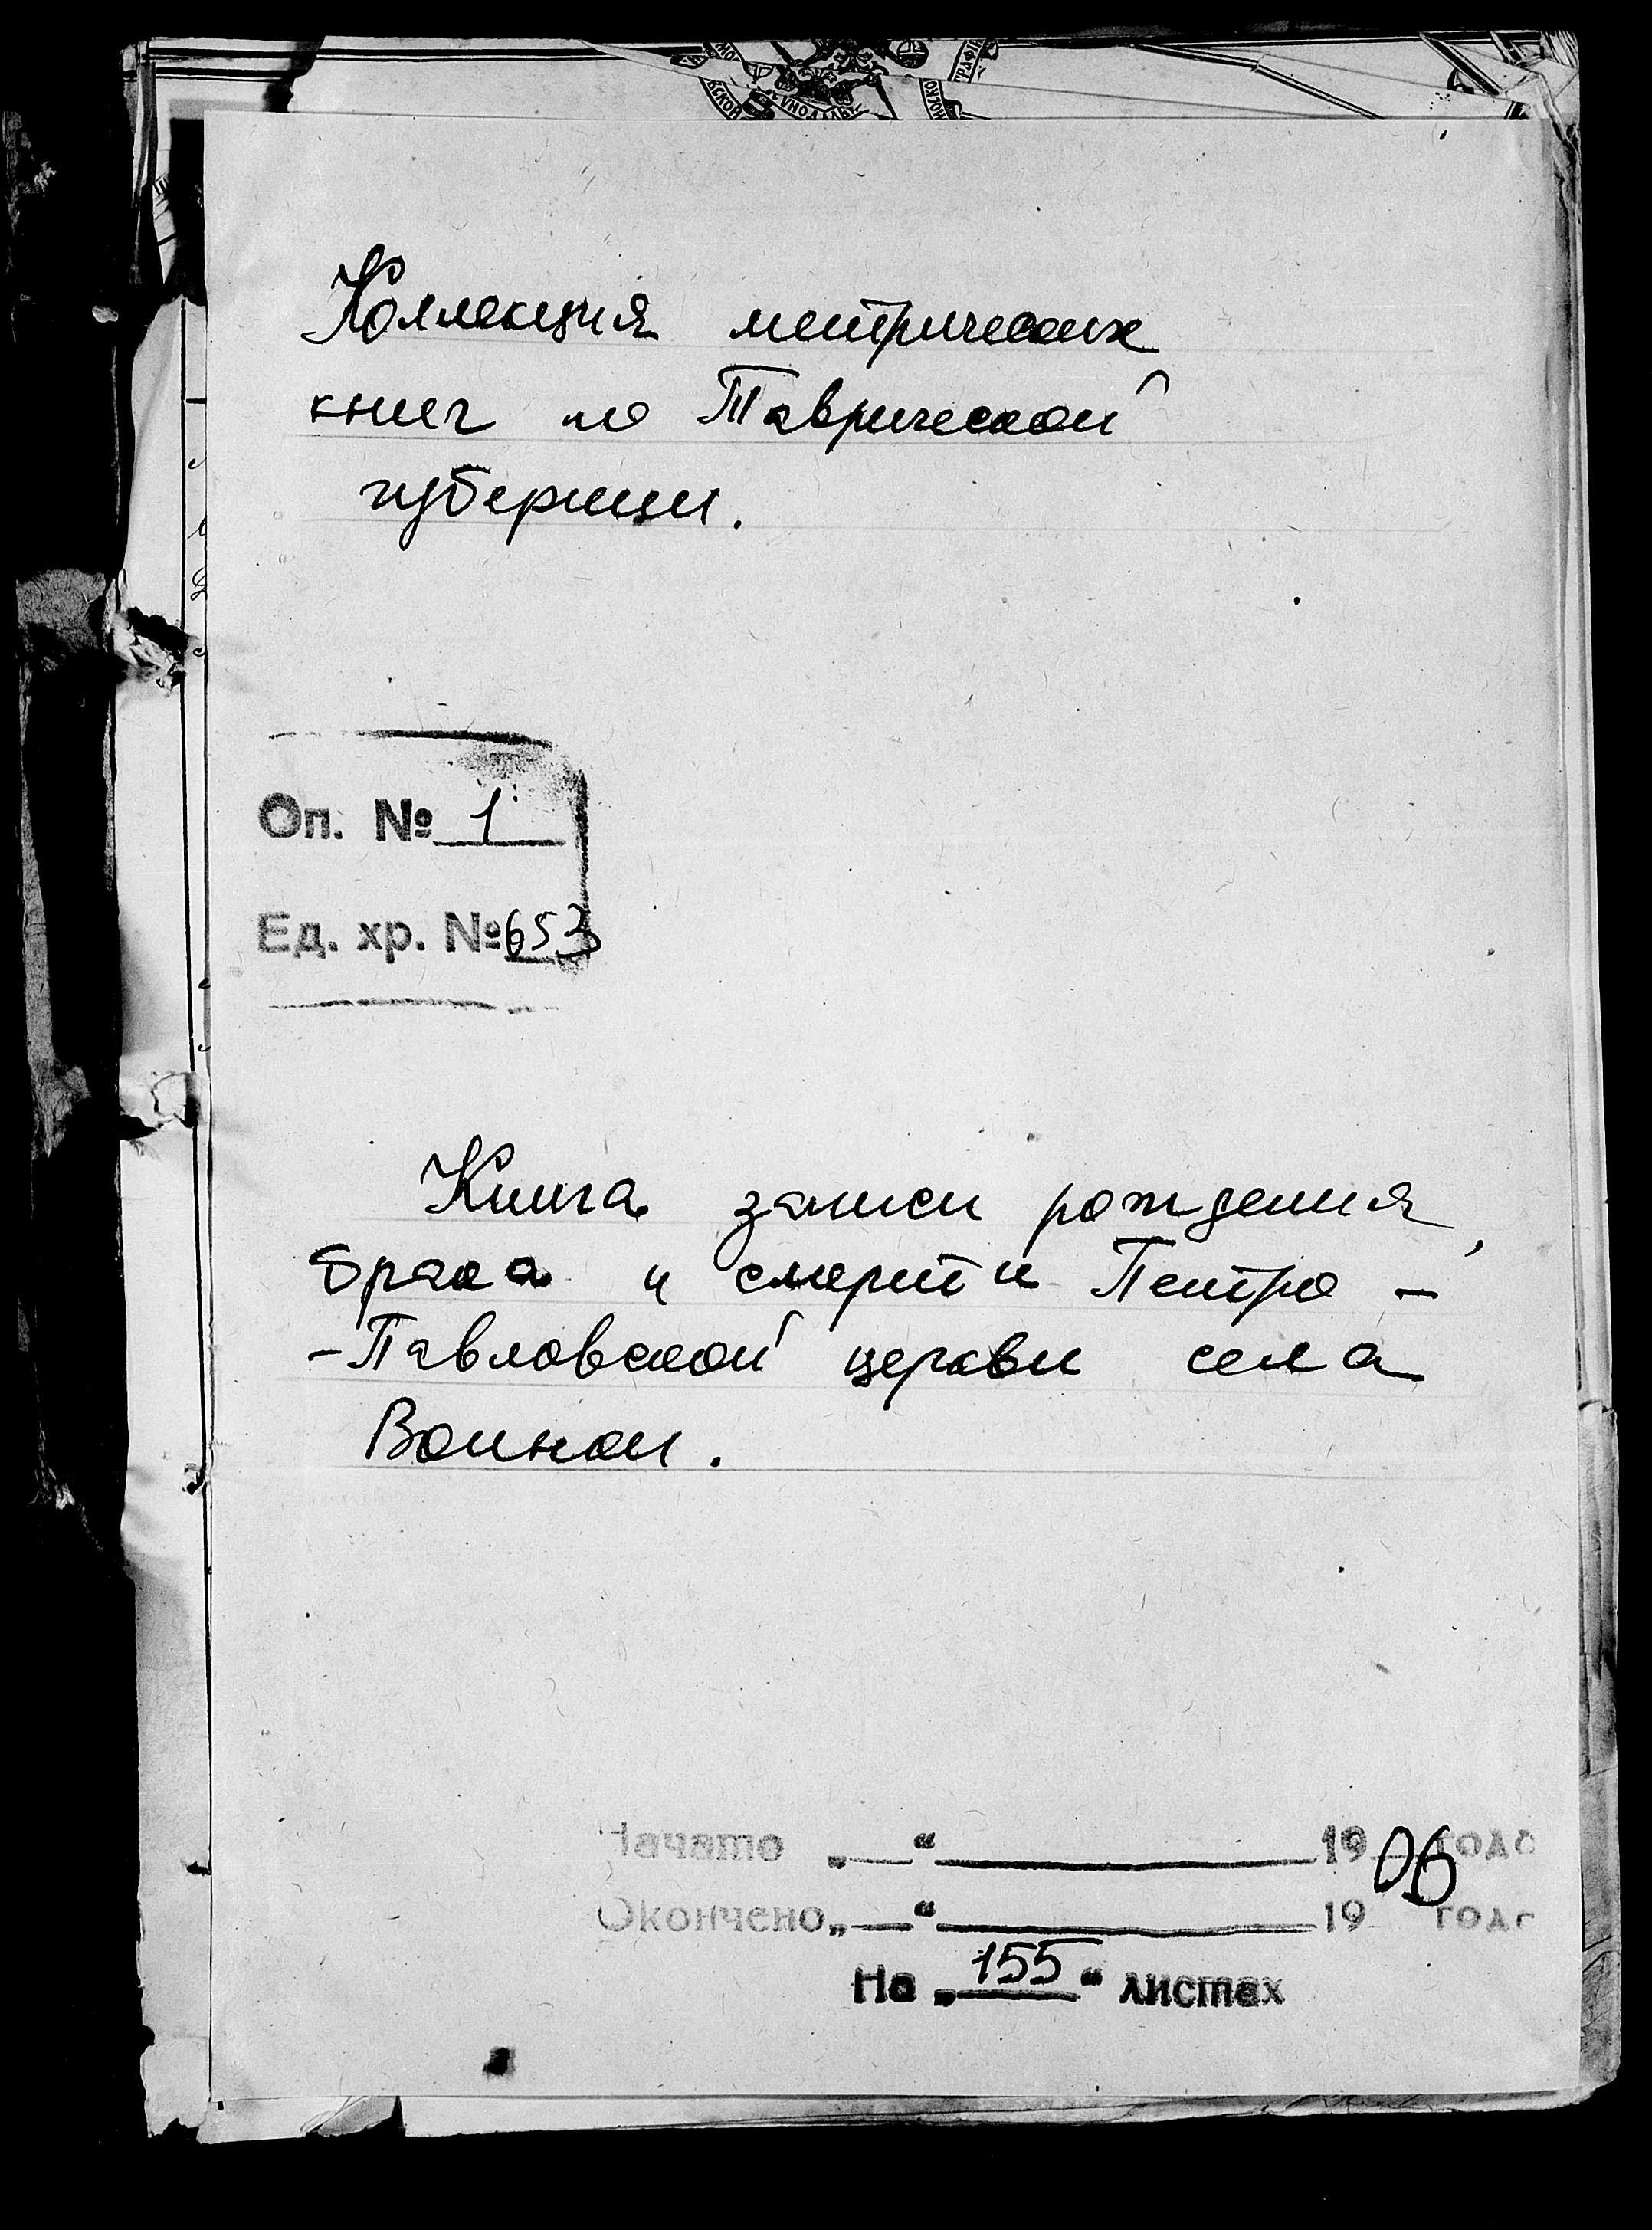 Коллекция метрических
книг по Таврической
губернии.
Оп. № 1
Ед. хр. № 653
Книга записи рождения,
брака и смерти Петро -
- Павловской церкви села
Воинки.
Начато „__“ ________ 1906 года
Окончено „__“ ________ 19 года
На „155“ листах